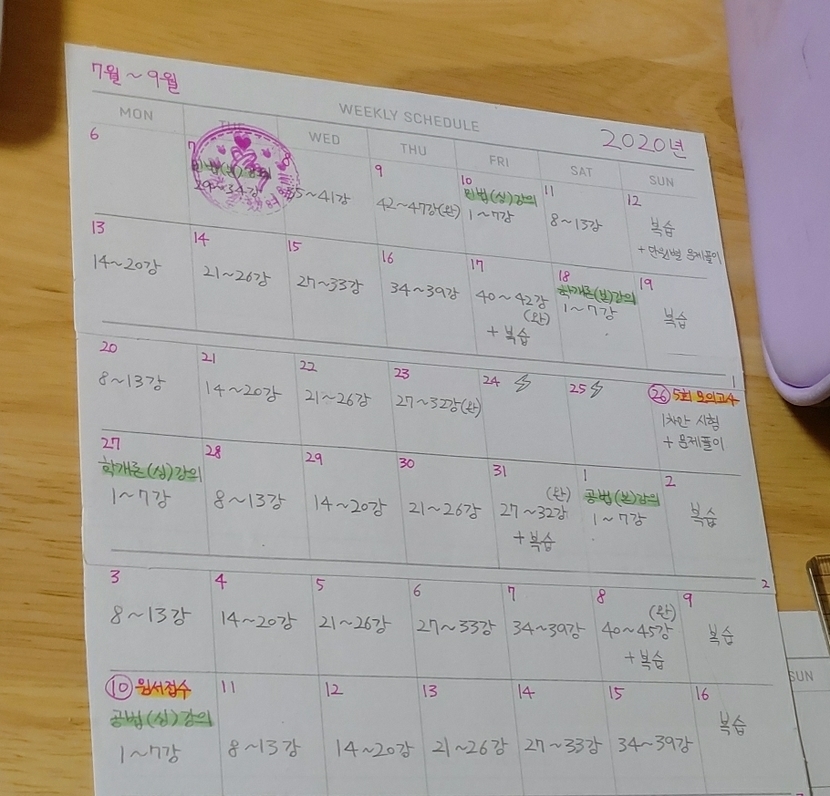 7월~9월
WEEKLY SCHEDULE
2020년
MON TUE WED THU FRI SAT SUN
6 7 8 9 10 11 12
민법(심)강의
29~34강 35~41강 42~47강(완) 1~7강 8~13강 복습
+단원별 문제풀이
13 14 15 16 17 18 19
학개론(본)강의
14~20강 21~26강 27~33강 34~39강 40~42강 1~7강 복습
(완)
+복습
1
20 21 22 23 24 25 26 5회 모의고사
8~13강 14~20강 21~26강 27~32강(완) 1차만 시험
+문제풀이
27 28 29 30 31 1 2
학개론(심)강의 (완) 공법(본)강의
1~7강 8~13강 14~20강 21~26강 27~32강 1~7강 복습
+복습
2
3 4 5 6 7 8 9
(완)
8~13강 14~20강 21~26강 27~33강 34~39강 40~45강 복습
+복습
10 원서접수 11 12 13 14 15 16
공법(심)강의 복습
1~7강 8~13강 14~20강 21~26강 27~33강 34~39강
SUN